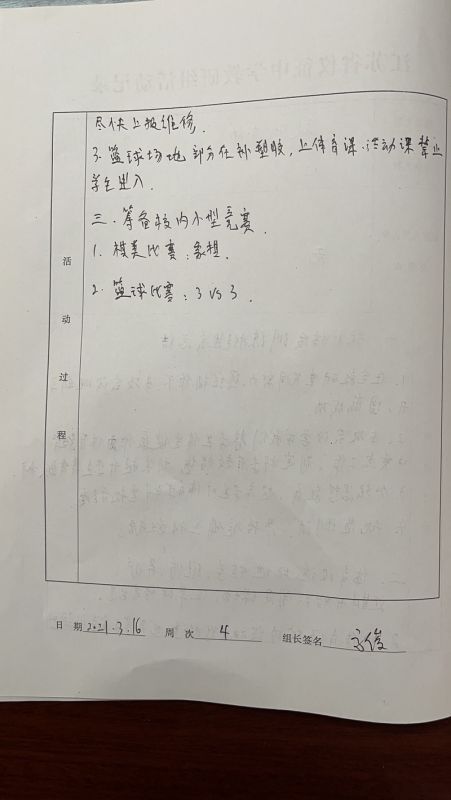 尽快上报维修.
3. 篮球场地部分在补塑胶, 上体育课.活动课禁止
学生进入.
三. 筹备校内小型竞赛.
1. 棋类比赛:象棋.
2. 篮球比赛: 3 VS 3.
活
动
过
程
日 期 2021.3.16 周 次 4 组长签名